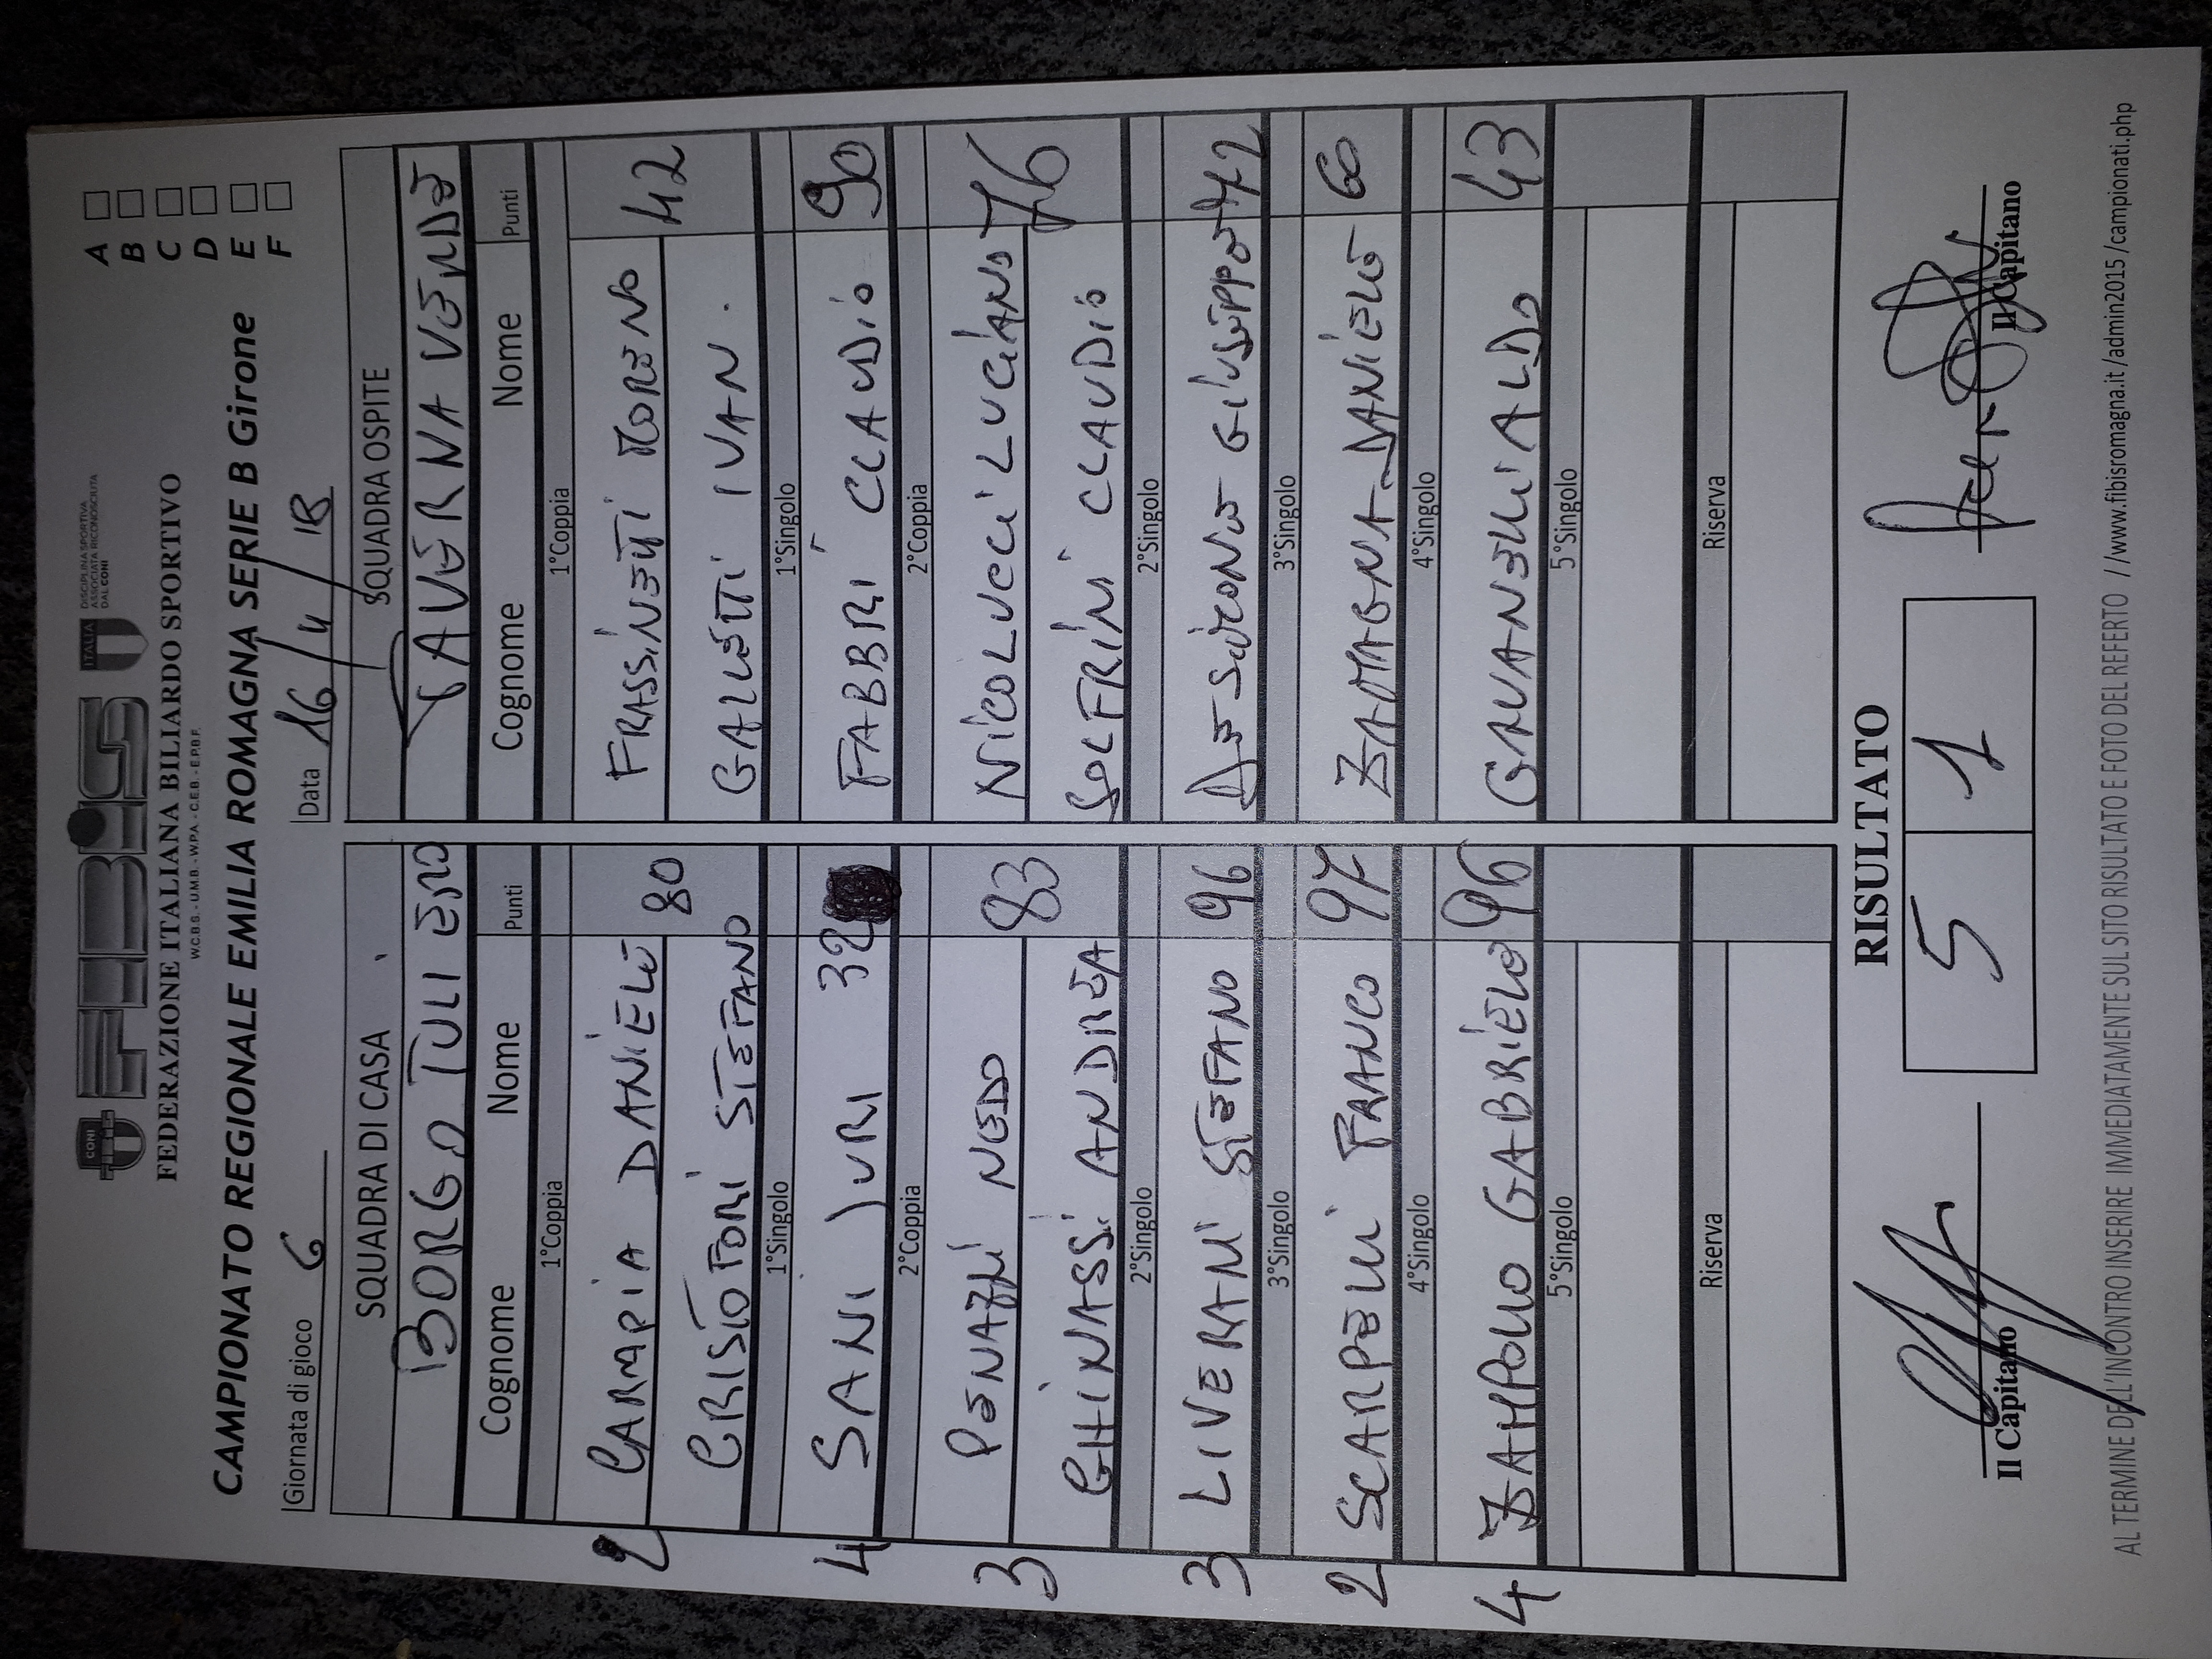 CONI
FIBiS
ITALIA
DISCIPLINA SPORTIVA
ASSOCIATA RICONOSCIUTA
DAL CONI
FEDERAZIONE ITALIANA BILIARDO SPORTIVO
W.C.B.S. - U.M.B. - W.P.A. - C.E.B. - E.P.B.F.
CAMPIONATO REGIONALE EMILIA ROMAGNA SERIE B Girone
A
B
C
D
E
F
Giornata di gioco 6
Data 16/4/18
SQUADRA DI CASA
SQUADRA OSPITE
BORGO TULIERO
TAVERNA VERDE
Cognome Nome Punti
Cognome Nome Punti
1°Coppia
1°Coppia
2 CARMPIA DANIELE 80
FRASSINETI MORENO 42
CRISTOFORI STEFANO
GALLETTI IVAN.
1°Singolo
1°Singolo
4 SANI JURI 32
FABBRI CLAUDIO 90
2°Coppia
2°Coppia
3 PENAZZI NEDO 83
NICOLUCCI LUCIANO 76
GHINASSI ANDREA
SOLFRINI CLAUDIO
2°Singolo
2°Singolo
3 LIVERANI STEFANO 96
DE SIMONE GIUSEPPE 42
3°Singolo
3°Singolo
2 SCARPELLI FRANCO 97
ZAMAGNA DANIELE 60
4°Singolo
4°Singolo
4 ZAMPOLLO GABRIELE 96
GAVANELLI ALDO 43
5°Singolo
5°Singolo
Riserva
Riserva
RISULTATO
5 1
Il Capitano
Il Capitano
AL TERMINE DELL'INCONTRO INSERIRE IMMEDIATAMENTE SUL SITO RISULTATO E FOTO DEL REFERTO //www.fibisromagna.it/admin2015/campionati.php